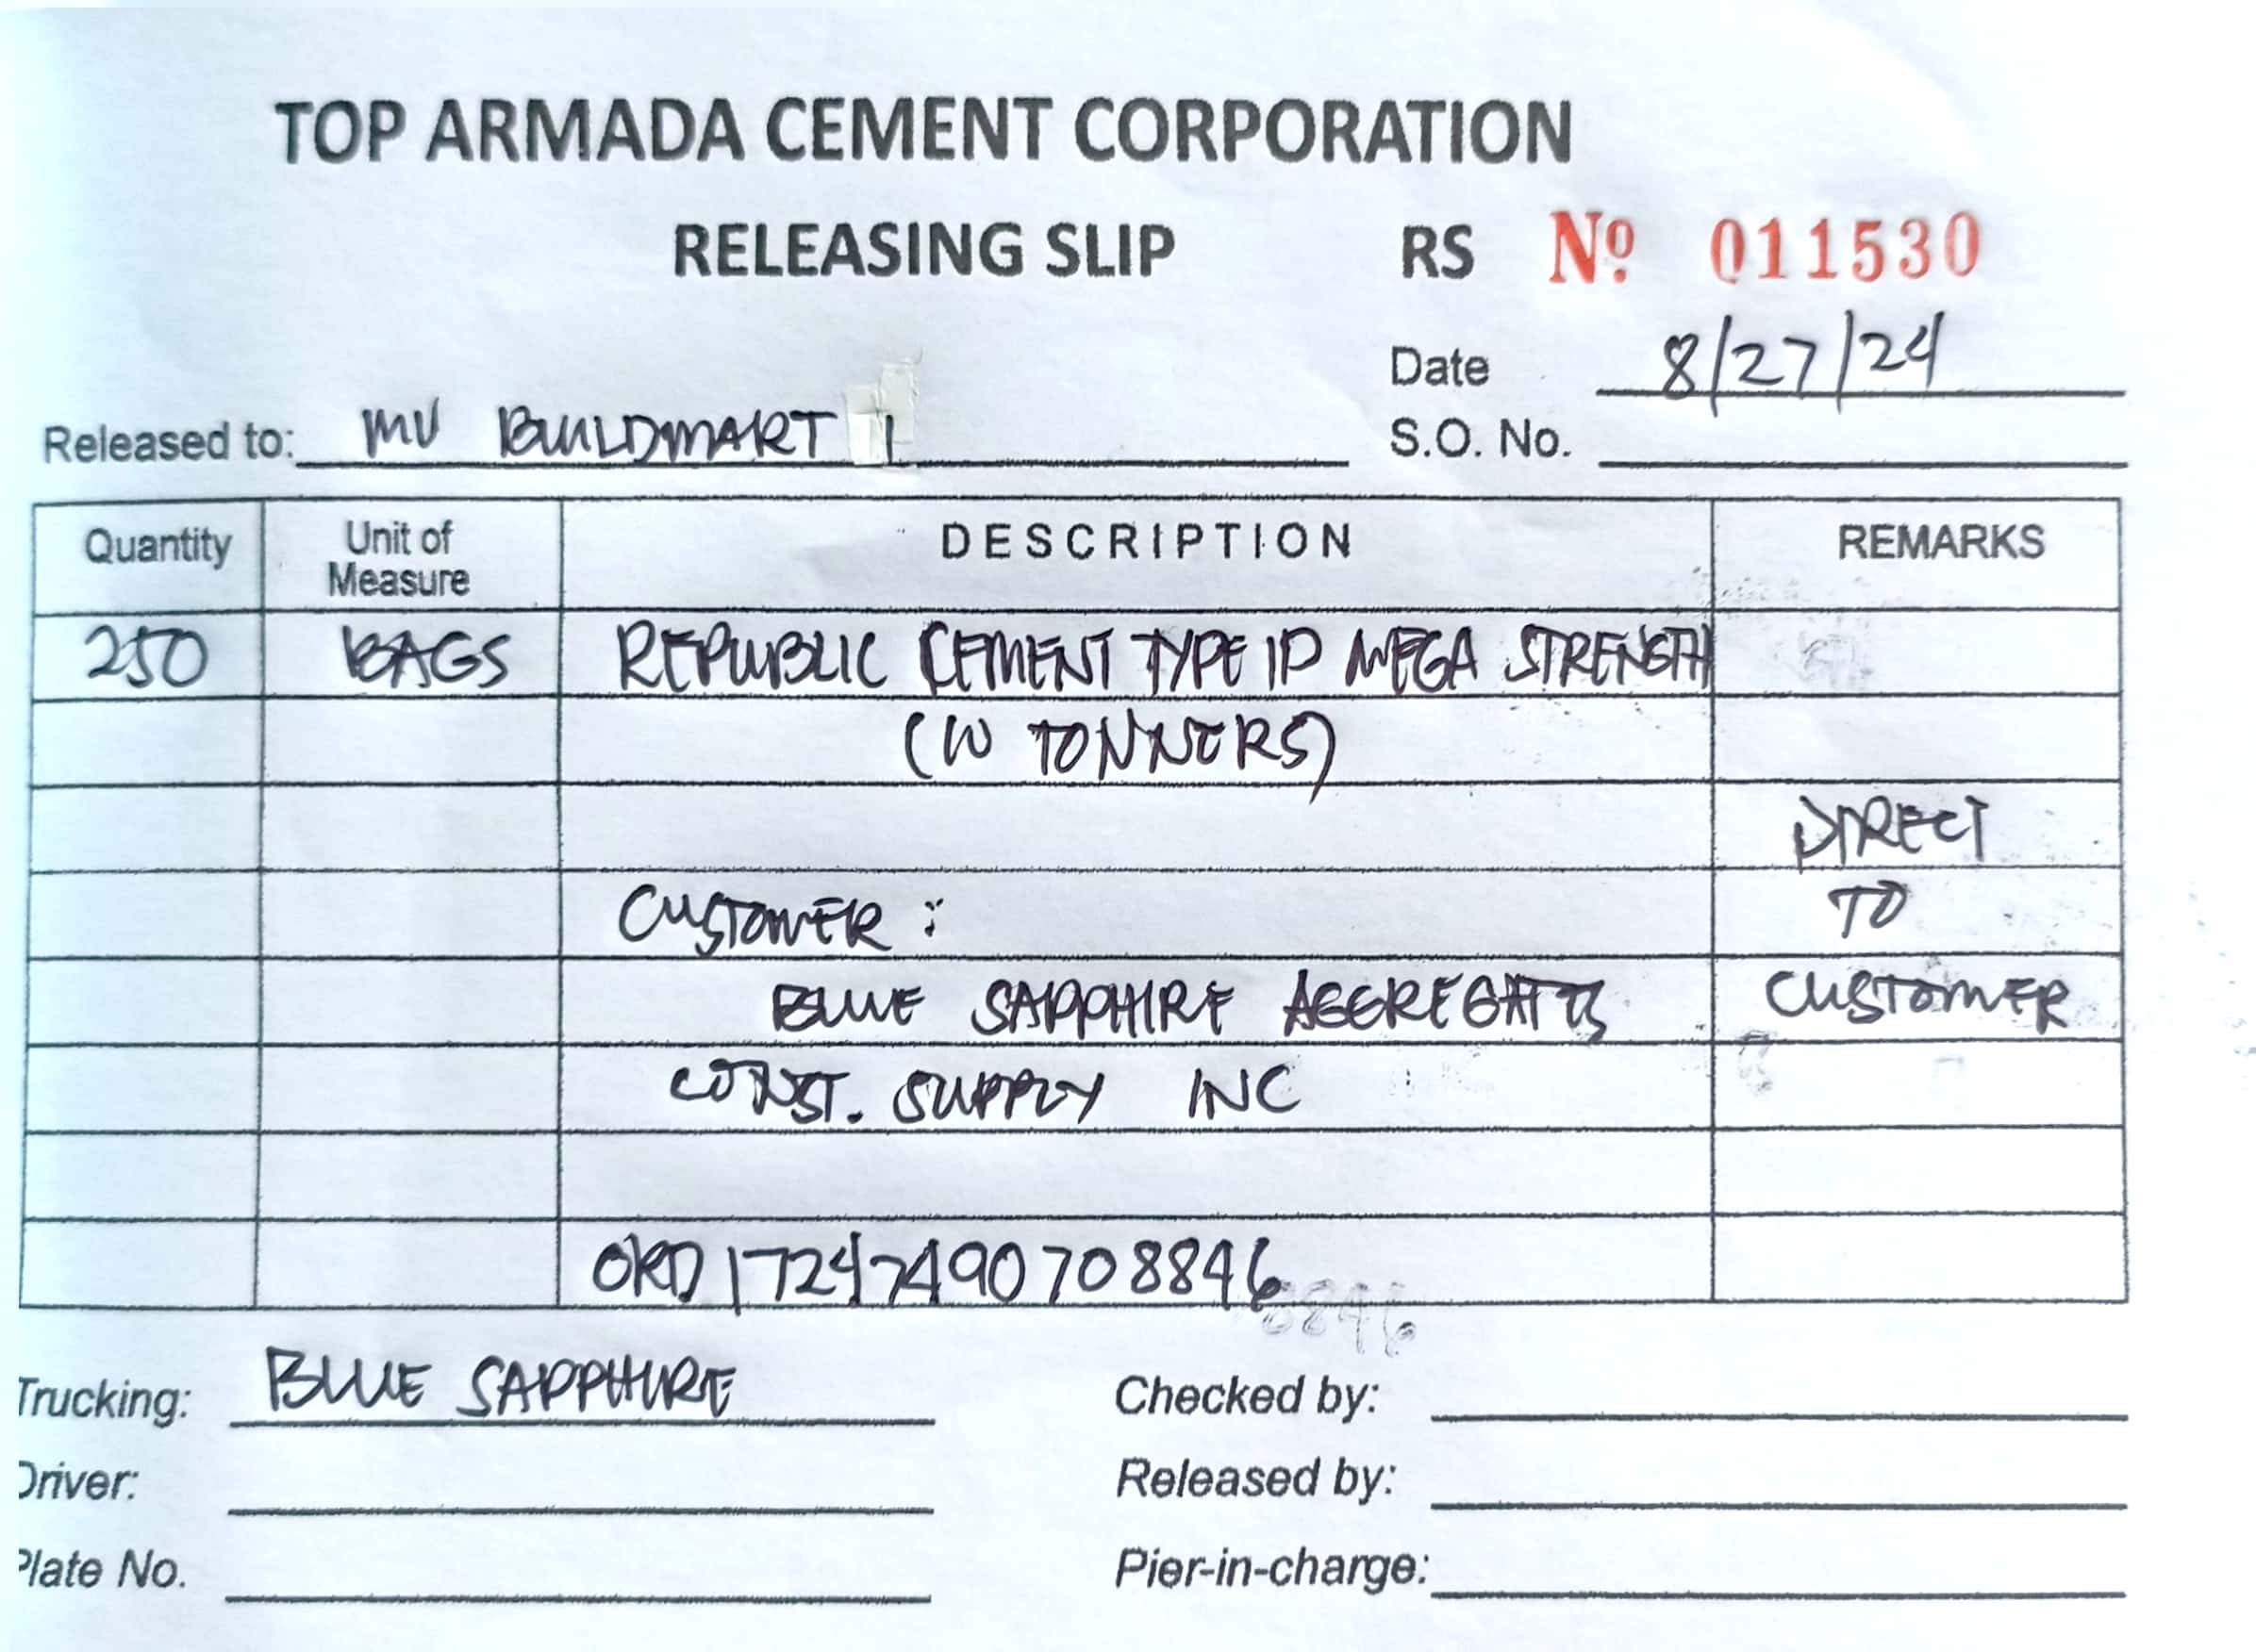 TOP ARMADA CEMENT CORPORATION
RELEASING SLIP RS Nº 011530
Date 8/27/24
Released to: MV BUILDMART 1 S.O. No.
Quantity Unit of Measure DESCRIPTION REMARKS
250 BAGS REPUBLIC CEMENT TYPE 1P MEGA STRENGTH
(W TONNERS)
DIRECT
CUSTOMER : TO
BLUE SAPPHIRE AGGREGATES CUSTOMER
CONST. SUPPLY INC
ORD 17247490708846
8846
Trucking: BLUE SAPPHIRE Checked by:
Driver: Released by:
Plate No. Pier-in-charge: